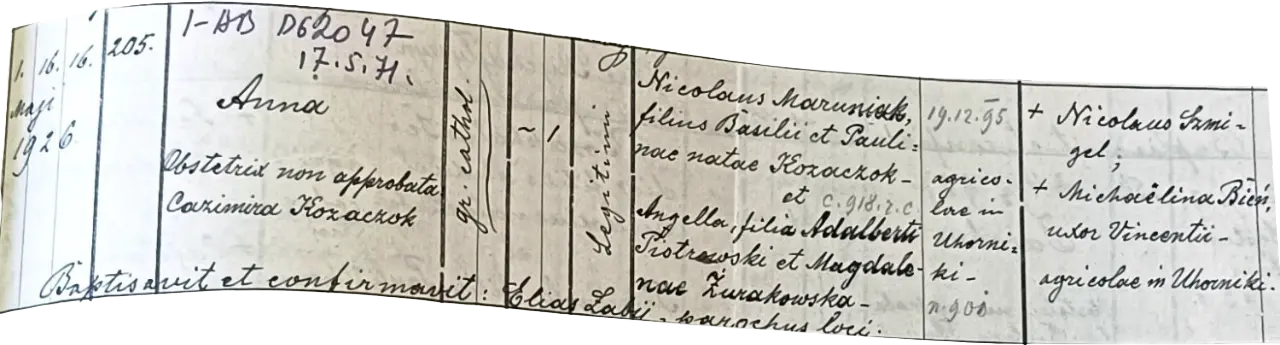 1. 16. 16. 205.
Maji
1926
1-AB D62047
17.5.71.
Anna
Obstetrix non approbata
Cazimira Kozaczok
gr. cathol.
~ 1
Legitimi
Nicolaus Maruniak,
filius Basilii et Pauli=
nae natae Kozaczok-
et c.918.r.c
Angella, filia Adalberti
Piotrowski et Magdale-
nae Żurakowska-
19.12.95
agrico-
lae in
Uhorni=
ki-
n. 901
+ Nicolaus Szmi-
gel;
+ Michaëlina Bień,
uxor Vincentii-
agricolae in Uhorniki.
Baptisavit et confirmavit: Elias Łabij - parochus loci.